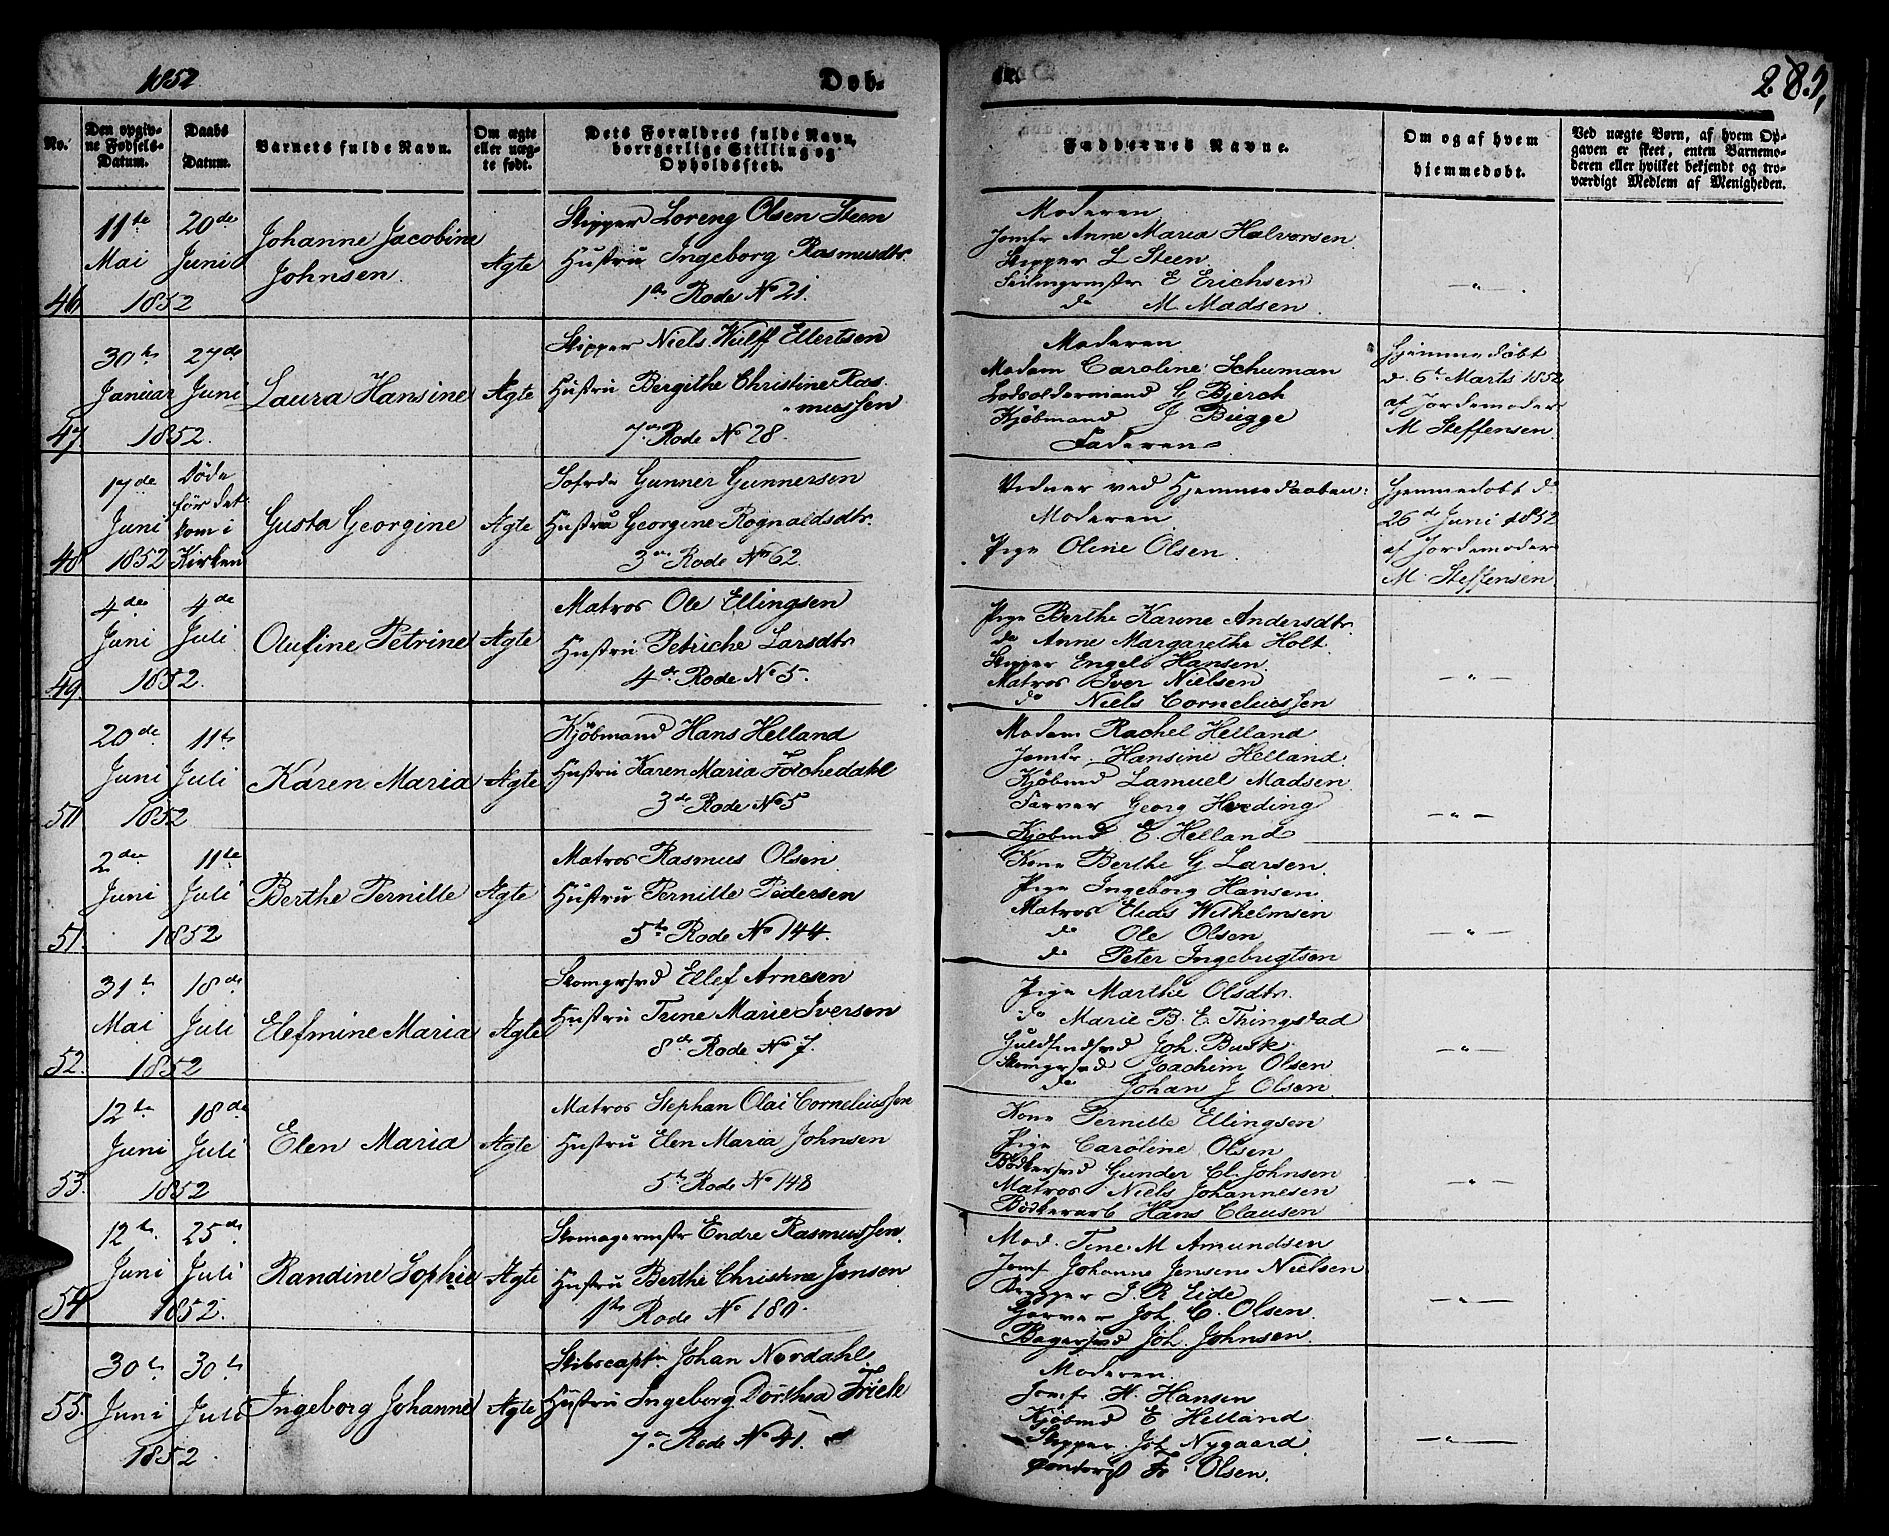 1852
Døb-
te.
285,
No.
Den opgiv-
ne Fødsels-
Datum.
Daabs
Datum.
Barnets fulde Navn.
Om ægte
eller uæg-
te født.
Dets Forældres fulde Navn,
borgerlige Stilling og
Opholdssted.
Faddernes Navne.
Om og af hvem
hjemmedøbt.
Ved uægte Børn, af hvem Op-
gaven er skeet, enten Barnemo-
deren eller hvilket bekjendt og tro-
værdigt Medlem af Menigheden.
46
11te
Mai
20de
Juni
1852
Johanne Jacobine
Johnsen
Ægte
Skipper Loreng Olsen Steen
Hustru Ingeborg Rasmusdtr
1ste Rode No 21.
Moderen
Jomfr Anne Maria Halvorsen
Skipper L Steen
Seilmgrmstr E Erichsen
do M. Madsen
47
30te
Januar
27de
Juni
1852.
Laura Hansine
Ægte
Skipper Niels Wulff Ellertsen
Hustru Bergithe Christine Ras-
mussen
7de Rode No 28.
Moderen
Madam Caroline Schuman
Lodsoldermand G Bjerch
Kjöbmand J Bugge
Faderen
Hjemmedöbt
d. 6te Marts 1852
af Jordemoder
M Steffensen
48
17de
Juni
1852
Döde
för det
kom i
Kirken
Gusta Georgine
Ægte
Gunner Gunnersen
Hustru Georgine Rognaldsdtr.
3de Rode No 62.
Vidner ved Hjemmedaaben:
Moderen
Pige Oline Olsen
Hjemmedöbt d.
26de Juni 1852
af Jordemoder
M. Steffensen
49
4de
Juni
4de
Juli
1852.
Olufine Petrine
Ægte
Matros Ole Ellingsen
Hustru Petriche Larsdtr
4de Rode No 5.
Pige Berthe Karine Andersdtr.
do Anne Margarethe Holt
Skipper Engelb Hansen
Matros Iver Nielsen
do Niels Corneliussen
50
20de
Juni
11te
Juli
1852
Karen Maria
Ægte
Kjöbmand Hans Helland
Hustru Karen Maria Forchedahl
3de Rode No 5
Madam Rachel Helland
Jomfr. Hansine Helland
Kjöbmd Lamuel Madsen
Farver Georg Hveding
Kjöbmd E. Helland
51.
2den
Juni
11te
Juli
1852
Berthe Pernille
Ægte
Matros Rasmus Olsen
Hustru Pernille Pedersen
5te Rode No 144.
Kone Berthe G Larsen
Pige Ingeborg Hansen
Matros Elias Wilhelmsen
do Ole Olsen
do Peter Ingebrigtsen
52.
31te
Mai
18de
Juli
1852
Elefmine Maria
Ægte
Skomgrsvd Ellef Arnesen
Hustru Trine Marie Iversen
8de Rode No 7.
Pige Marthe Olsdtr.
do Marie B. E. Thingstad
Guldsmdsvd Joh. Busk
Skomgrsvd Joachim Olsen
do Johan J Olsen
53.
12te
Juni
18de
Juli
1852
Elen Maria
Ægte
Matros Stephan Olai Corneliussen
Hustru Elen Maria Johnsen
5te Rode No 148
Kone Pernille Ellingsen
Pige Caroline Olsen
Bödkersvd Gunder Cl. Johnsen
Matros Niels Johannesen
Bödkerarb Hans Clausen
54
12te
Juni
25de
Juli
1852.
Randine Sophie
Ægte
Skomagermstr Endre Rasmussen
Hustru Berthe Christine Jensen
1ste Rode No 180.
Mad. Tine M Amundsen
Jomf Johanne Jensine Nielsen
J. R Eide
Garver Joh. C. Olsen
Bagersvd Joh. Johnsen
55.
30te
Juni
30te
Juli
1852
Ingeborg Johanne
Ægte
Skibscaptn Johan Nordahl
Hustru Ingeborg Dorthea Frick
7de Rode No 41.
Moderen
Jomfr H. Hansen
Kjöbmd E Helland
Skipper Joh Nygaard
Fr. Olsen.